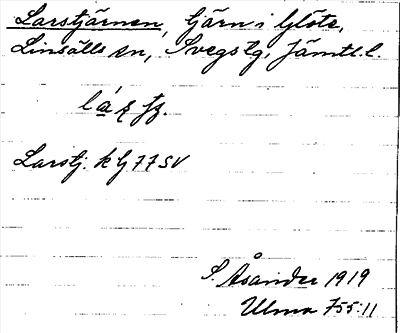 Larstjärnen, tjärn i Glöte,
Linsälls sn, Svegs tg, Jämtl. l.
Larstj. k G 77 SV
S. Åsander 1919
Ulma 755:11